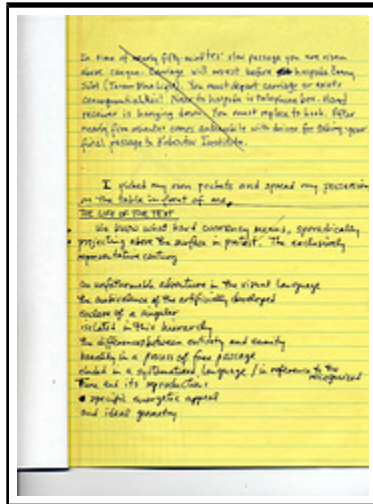 In time of nearly fifty minutes' slow passage you are risen
above canyon. Carriage will arrest before hospice Benny
You must depart carriage or exists
consequential! Next to hospice is telephone box. Hand
receiver is hanging down. You must replace to hook. After
nearly five minutes comes automobile with driver for taking your
final passage to Institute.
I picked my own pockets and spread my possessions
on the table in front of me.
THE LIFE OF THE TEXT
We know what hard currency means, sporadically
projecting above the surface in protest. The exclusively
representative century
an unfathomable adventure in the visual language
the ambivalence of the artificially developed
enclave of a singular
isolated in this hierarchy
the differences between entirety and enmity
heading in a process of free passage
ended in a systematized language / in reference to the
recognized
time and its reproductions
a specific energetic appeal
and ideal geometry